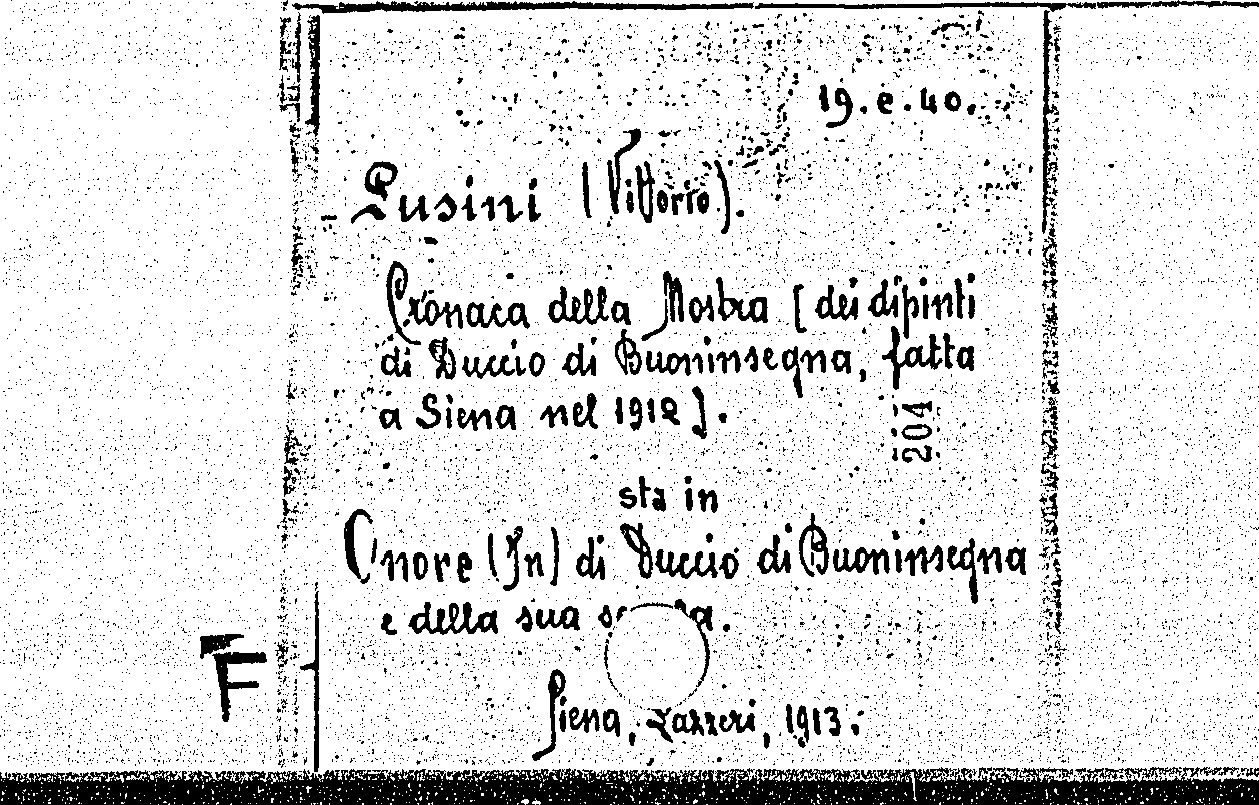 19.e.40.
Lusini (Vittorio).
Cronaca della Mostra [dei dipinti
di Duccio di Buoninsegna, fatta
a Siena nel 1912].
204
sta in
Onore (In) di Duccio di Buoninsegna
e della sua
Siena, Lazzeri, 1913.
F